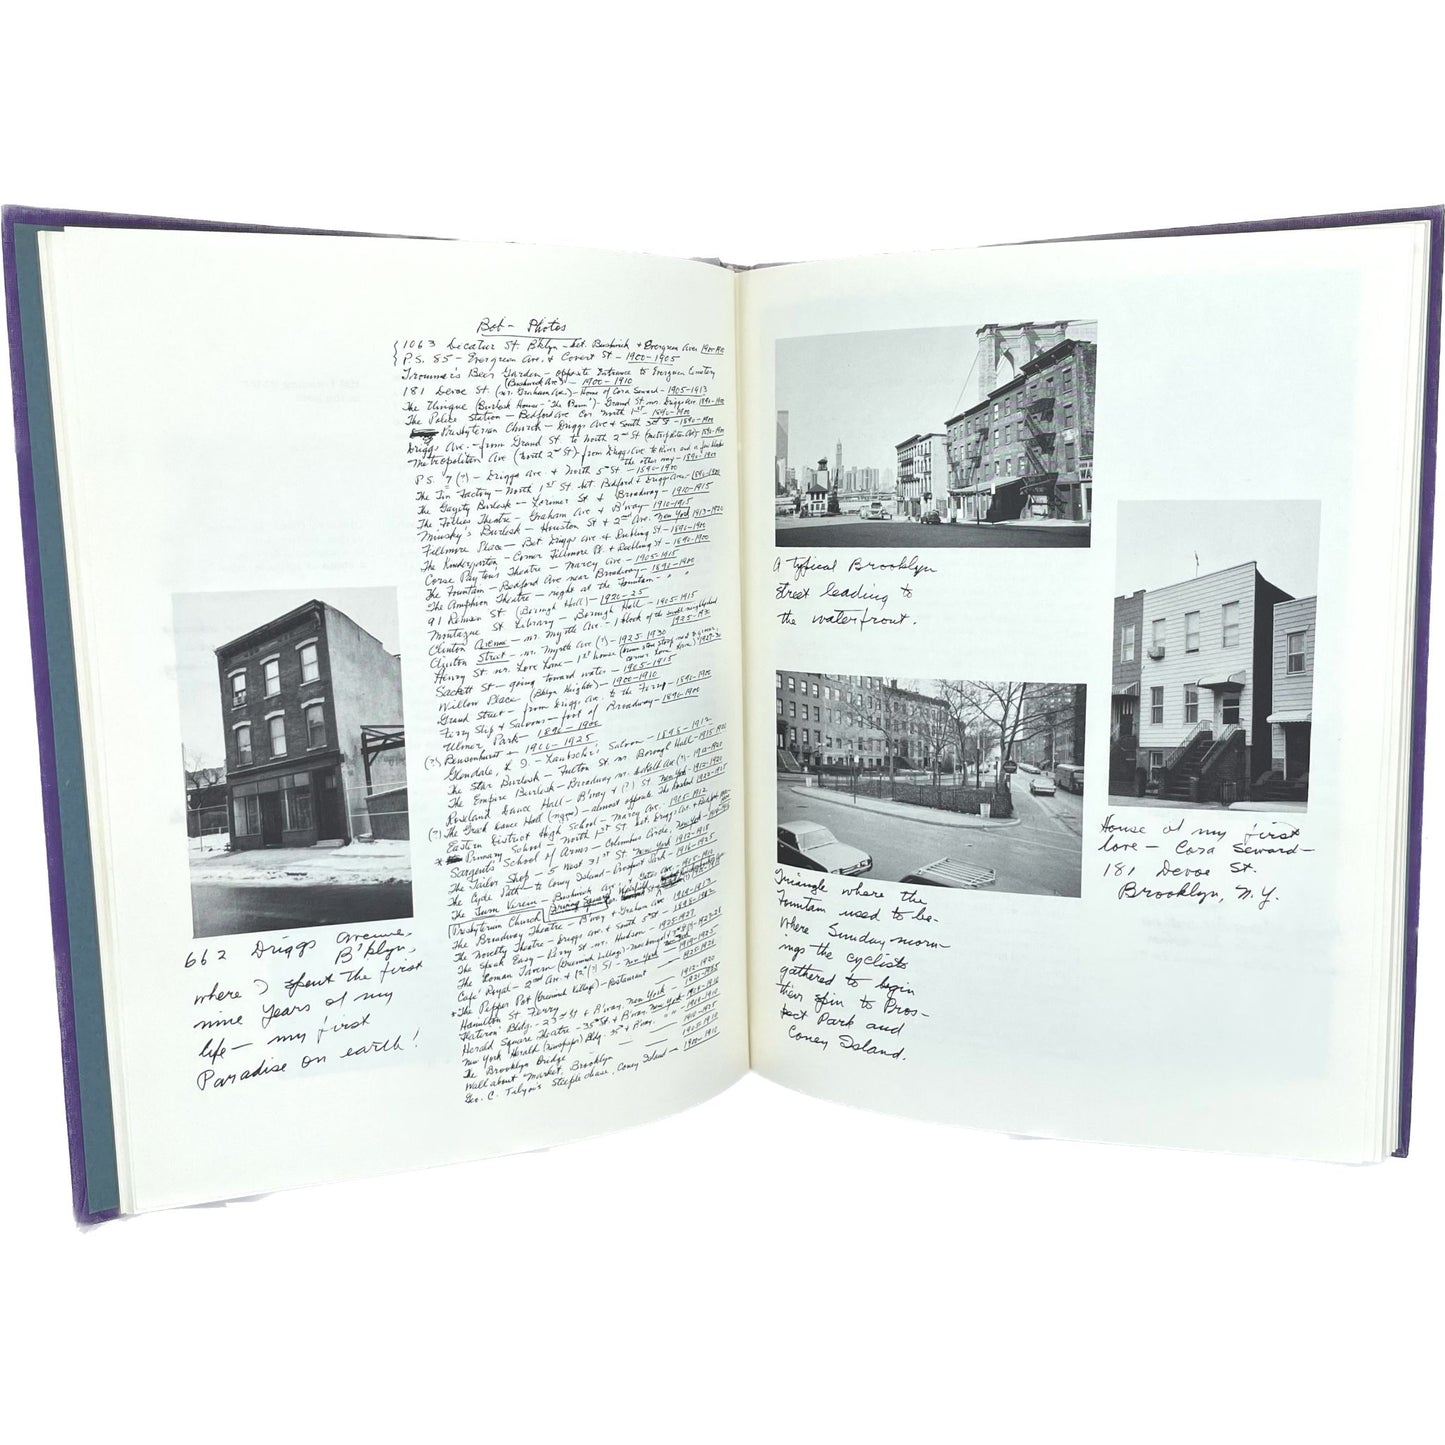 Bob - Photos
1063 Decatur St. Bklyn - bet. Bushwick & Evergreen Aves 1900-1910
P.S. 85 - Evergreen Ave. & Covert St - 1900-1905
Trommer's Beer Garden - opposite Entrance to Evergreen Cemetery
(Bushwick Ave) - 1900-1910
181 Devoe St. (nr. Graham Ave.) - Home of Cora Seward - 1905-1913
The Unique (Burlesk House - "The Bum") - Grand St. nr. Driggs Ave 1890-1900
The Police Station - Bedford Ave cor. North 1st - 1890-1900
Presbyterian Church - Driggs Ave & South 3rd St - 1890-1900
Driggs Ave. - from Grand St. to North 2nd St (Metropolitan Ave) - 1890-1900
Metropolitan Ave (North 2nd St) - from Driggs Ave to River and a few blocks
the other way - 1890-1900
P.S. 7 (?) - Driggs Ave. & North 5th St. - 1890-1900
The Tin Factory - North 1st St bet. Bedford & Driggs Aves - 1890-1900
The Gayety Burlesk - Lorimer St & Broadway - 1910-1915
The Follies Theatre - Graham Ave & B'way - 1910-1915
Minsky's Burlesk - Houston St & 2nd Ave. New York 1913-1920
Fillmore Place - Bet Driggs Ave & Roebling St - 1890-1900
The Kindergarten - Corner Fillmore Pl. & Roebling St - 1890-1900
Corse Payton's Theatre - Marcy Ave - 1905-1915
The Fountain - Bedford Ave near Broadway - 1890-1900
The Amphion Theatre - right at the Fountain - " "
91 Remsen St (Borough Hall) - 1920-25
Montague St. Library - Borough Hall - 1905-1915
Clinton Avenue - nr. Myrtle Ave - 1 block of the neighborhood
1925-1930
Clinton Street - nr. Myrtle Ave (?) - 1925-1930
Henry St nr. Love Lane - 1st house (brown stone stoop
corner Love Lane)
Sackett St - going toward water - 1905-1915
Willow Place (Bklyn Heights) - 1900-1910
Grand Street - from Driggs Ave. to the Ferry - 1890-1900
Ferry Slip & Saloons - foot of Broadway - 1890-1900
Ulmer Park - 1890-1900
(?) Bensonhurst - 1900-1925
Glendale, L. I. - Saloon - 1895-1912
The Star Burlesk - Fulton St nr Borough Hall - 1915-1920
The Empire Burlesk - Broadway nr. DeKalb Ave (?) - 1912-1920
Roseland Dance Hall - B'way & (?) St New York -
(?) The Greek Dance Hall - almost opposite the Roseland
Eastern District High School - Marcy Ave. - 1905-1912
* Primary School - North 1st St bet. Driggs Ave & Bedford
Sargent's School of Arms - Columbus Circle, New York -
The Tailor Shop - 5 West 31st St New York - 1912-1915
The Cycle Path - to Coney Island - Prospect Park - 1916-1925
The Turn Verein - Bushwick Ave & Gates Ave - 1905-1910
Presbyterian Church
The Broadway Theatre - B'way & Graham Ave 1908-1913
The Novelty Theatre - Driggs Ave & South 5th St -
The Speak Easy - Perry St nr. Hudson - 1925-1927
The Roman Tavern (Greenwich Village) - New York -
Cafe Royal - 2nd Ave & 12th (?) St - New York - 1919-1925
* The Pepper Pot (Greenwich Village) - Restaurant
Hamilton St Ferry - 1912-1920
Flatiron Bldg. - 23rd St & B'way, New York -
Herald Square Theatre - 35th St & B'way, New York -
New York Herald (newspaper) Bldg. 35th & B'way. " "
The Brooklyn Bridge
Wallabout Market, Brooklyn
Geo. C. Tilyou's Steeplechase, Coney Island - 1900-1910
662 Driggs Avenue,
B'klyn,
where I spent the first
nine years of my
life - my first
Paradise on earth!
A typical Brooklyn
street leading to
the waterfront.
Triangle where the
Fountain used to be -
Where Sunday morn-
ings the cyclists
gathered to begin
their spin to Pros-
pect Park and
Coney Island.
House of my first
love - Cora Seward -
181 Devoe St.
Brooklyn, N.Y.
WA